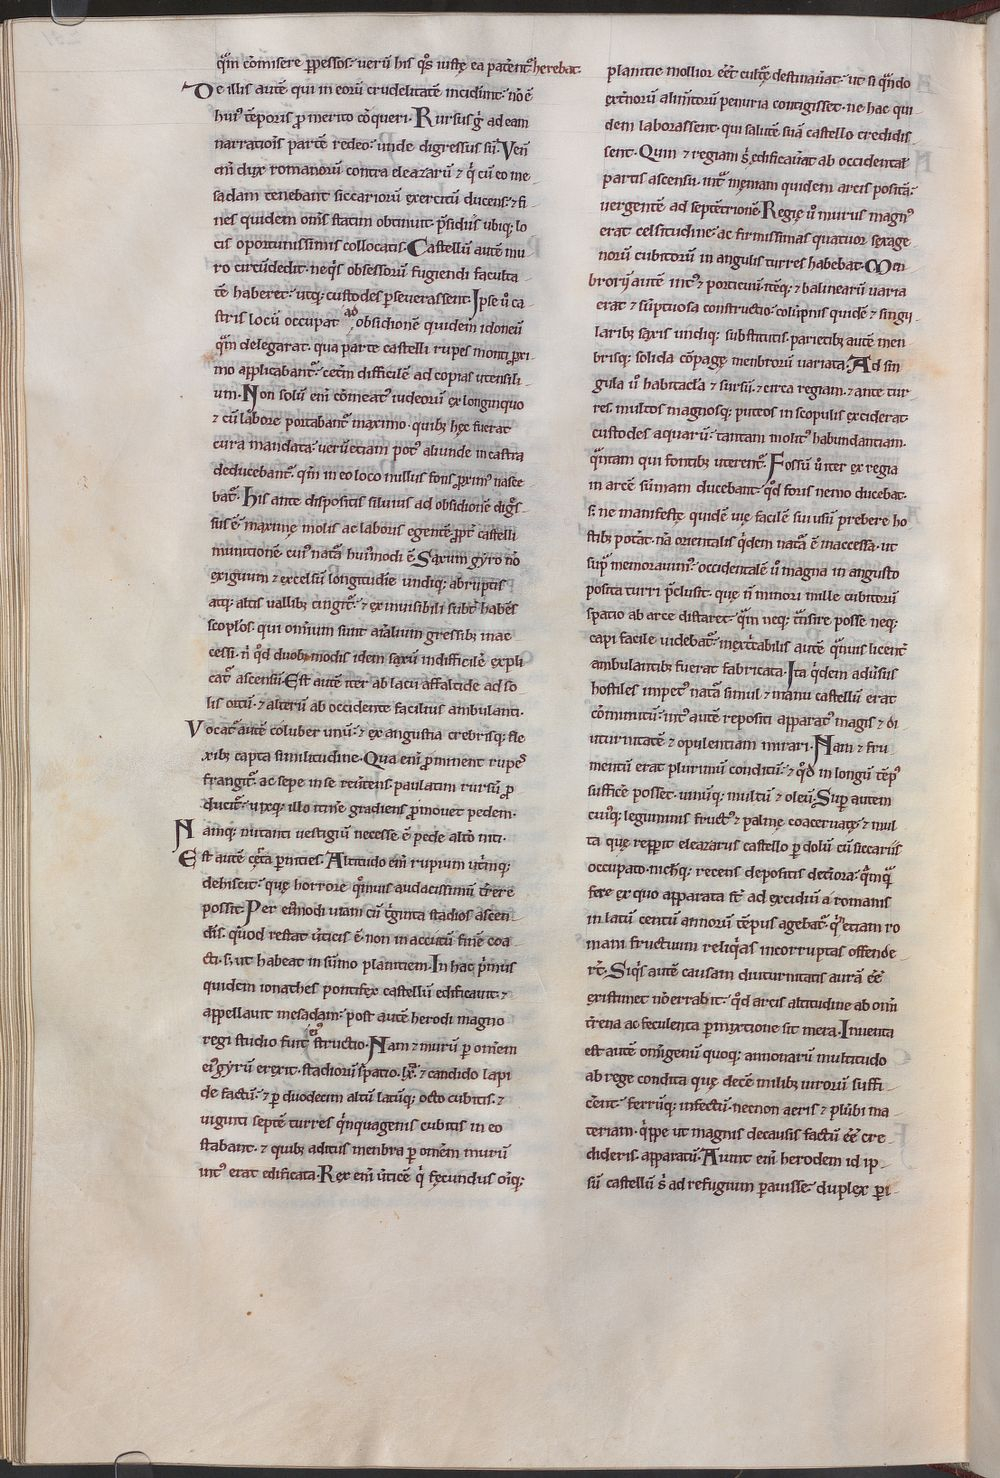 q̄m cōmisere ꝑpessos· uerū his q̄s iustę ea patent᷑ herebat.
De illis autē qui in eorū crudelitatē inciđunt· nō ē
hui᷒ tēporis ꝓ merito cōqueri. Rursus ḡ ad eam
narratiōis partē redeo· unde digressus sū. Ven̄
em̄ dux romanorū contra eleazarū ⁊ q̇ cū eo me
sadam tenebant siccariorū exercitū ducens· ⁊ fi
nes quidem om̄s statim obtinuit· p̄sidiis ubiq; lo
cis oportunissimis collocatis. Castellū autē mu
ro circūdedit· neq̄s obsessorū fugiendi faculta
tē haberet· utq; custodes ꝑseuerassent. Ipse u̇ ca
stris locū occupat ad obsidionē quidem idoneū
q̄m delegarat· qua parte castelli rupes monti ꝓxi
mo applicabant᷑· cet̄m difficilē ad copias utensili
um. Non solū em̄ cōmeat᷒ iudeorū ex longinquo
⁊ cū labore portabant᷑ maximo· quib; hęc fuerat
cura mandata· uerūetiam pot᷒ aliunde in castra
deducebant᷑· qm̄ in eo loco nullus fons ꝓxim᷒ nasce
bat᷑. His ante dispositis siluius ad obsidionē dig̊s
sus ē maximę molis ac laboris egentē ꝓpt̄ castelli
munitionē· cui᷒ nat̄a hui᷒modi ē. Saxum gyro nō
exiguum ⁊ excelsū longitudīe undiq; abruptis
atq; altis uallib; cingit᷑· ⁊ ex inuisibili subt̄ habēs
scoplos· qui omnium sunt aīalium gressib; inac
cessi· n̄ q̄d duob; modis idem saxū indifficilē expli
cat᷑ ascensū. Est autē iter ab lacu asfaltide ad so
lis ortū· ⁊ alterū ab occidente facilius ambulanti.
Vocat᷑ autē coluber unū· ⁊ ex angustia crebrisq; fle
xib; capta similitudine. Qua em̄ ꝓminent rupes
frangit᷑· ac sepe in se reu̇tens· paulatim rursū ꝓ
ducit᷑· uixq; illo itinē gradiens ꝓmouet pedem.
Namq; nutanti uestigiū necesse ē pede alt̄o niti·
Est autē cer̄ta ꝑnities. Altitudo em̄ rupium ut̄mq;
dehiscit· quę horrore q̄muis audacissimū t̄rere
possit. Per eīmodi uiam cū t̊ginta stadios ascen
dis· quod restat u̇ticis ē non in accutū finē coa
cti· s; ut habeat in sūmo planitiem. In hac p̄mus
quidem ionathes pontifex castellū edificauit· ⁊
appellauit mesadam· post autē herodi magno
regi studio fuit ei᷒ structio. Nam ⁊ murū ꝑ omēm
ei᷒ gyrū erexit· stadiorū spatio· ⁊ candido lapi
de factū· ⁊ ꝑ duodecim altū latūq; octo cubitis· ⁊
uiginti septē turres q̇nquagenis cubitis in eo
stabant· ⁊ quib; aditus menbra ꝑ omēm murū
int᷒ erat edificata. Rex em̄ u̇ticē q̇ fęcundus oīq;
planitie mollior eēt cultę̄ destinauat· ut si q̄ndo
ext̄norū alimtorū penuria contigisset· ne hac qui
dem laborassent· qui salutē suā castello credidis
sent. Qum ⁊ regiam s; edificauat ab occidentał
partis ascensu· int̄ męniam quidem arcis posita·
uergentē ad septētrionē. Regię u̇ murus magn᷒
erat celsitudine· ac firmissimas quatuor sexage
norū cubitorū in angulis turres habebat. Men
brorū autē int᷒ ⁊ porticuū itēq; ⁊ balnearū uaria
erat ⁊ sūptuosa constructio· colūpnis quidē ⁊ singu
larib; saxis undiq; substitutis· parietib; autē men
brisq; solida cōpagę menbrorū uariata. Ad sin
gula u̇ habitacła ⁊ sursū· ⁊ circa regiam· ⁊ ante tur
res· multos magnosq; puteos in scopulis exciderat·
custodes aquarū· tantam molit᷒ habundantiam·
q̄ntam qui fontib; uterent᷑. Fossū u̇ iter ex regia
in arcē sūmam ducebant· q̄d foris nemo ducebat·
s; ne manifestę quidē uię facilē sui usū prebere ho
stib; potāt· nā orientalis q̇dem nat̄a ē inaccessa· ut
sup̄ memorauim᷒· occidentalē u̇ magna in angusto
posita turri p̄clusit· que n̄ minori mille cubitorū
spatio ab arce distaret· q̄m neq; t̄nsire posse neq;
capi facile uidebat᷑· inext̊cabilis autē q̄muis licent᷑
ambulantib; fuerat fabricata. Ita q̇dem aduersus
hostiles impet᷒ nat̄a simul ⁊ manu castellū erat
cōmunitū· int᷒ autē repositi apparat᷒ magis ⁊ di
uturnitatē ⁊ opulentiam mirari. Nam ⁊ fru
mentū erat plurimū conditū· ⁊ q̄d in longū tēp᷒
sufficē posset· uinūq; multū ⁊ oleū. Sup̄ autem
cui᷒q; leguminis fruct᷒ ⁊ palmę coaceruatę· ⁊ mul
ta quę repp̄it eleazarus castello ꝑ dolū cū siccariis
occupato· nichilq; recens depositis det̄iora· q̄mq̄
fere ex quo apparata sūt ad excidiū a romanis
in latū centū annorū tēpus agebat᷑· q̇ etiam ro
mani fructuum reliq̇as incorruptas offende
rt̄. Siq̇s autē causam diuturnitatis aurā eē
existimet nō errabit· q̄d arcis altitudine ab om̄i
t̄rena ac feculenta ꝑmixtione sit mera. Inuenta
est autē om̄igenū quoq; annonarū multitudo
ab rege condita quę decē milib; uirorū suffi
cēnt· ferrūq; infectū· necnon aeris ⁊ plūbi ma
teriam· q̇ppe ut magnis decausis factū eē cre
dideris· apparatū. Aiunt em̄ herodem id ip
sū castellū s; ad refugium ꝑauisse· duplex ꝑi